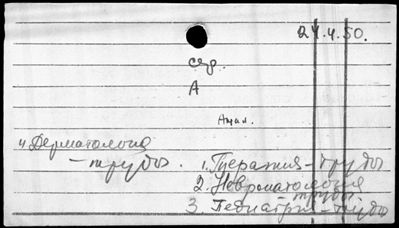 24.4.50.
А
Англ.
4. Дерматология
– труды.
1. Терапия – труды
2. Невропатология
– труды.
3. Педиатрия – труды